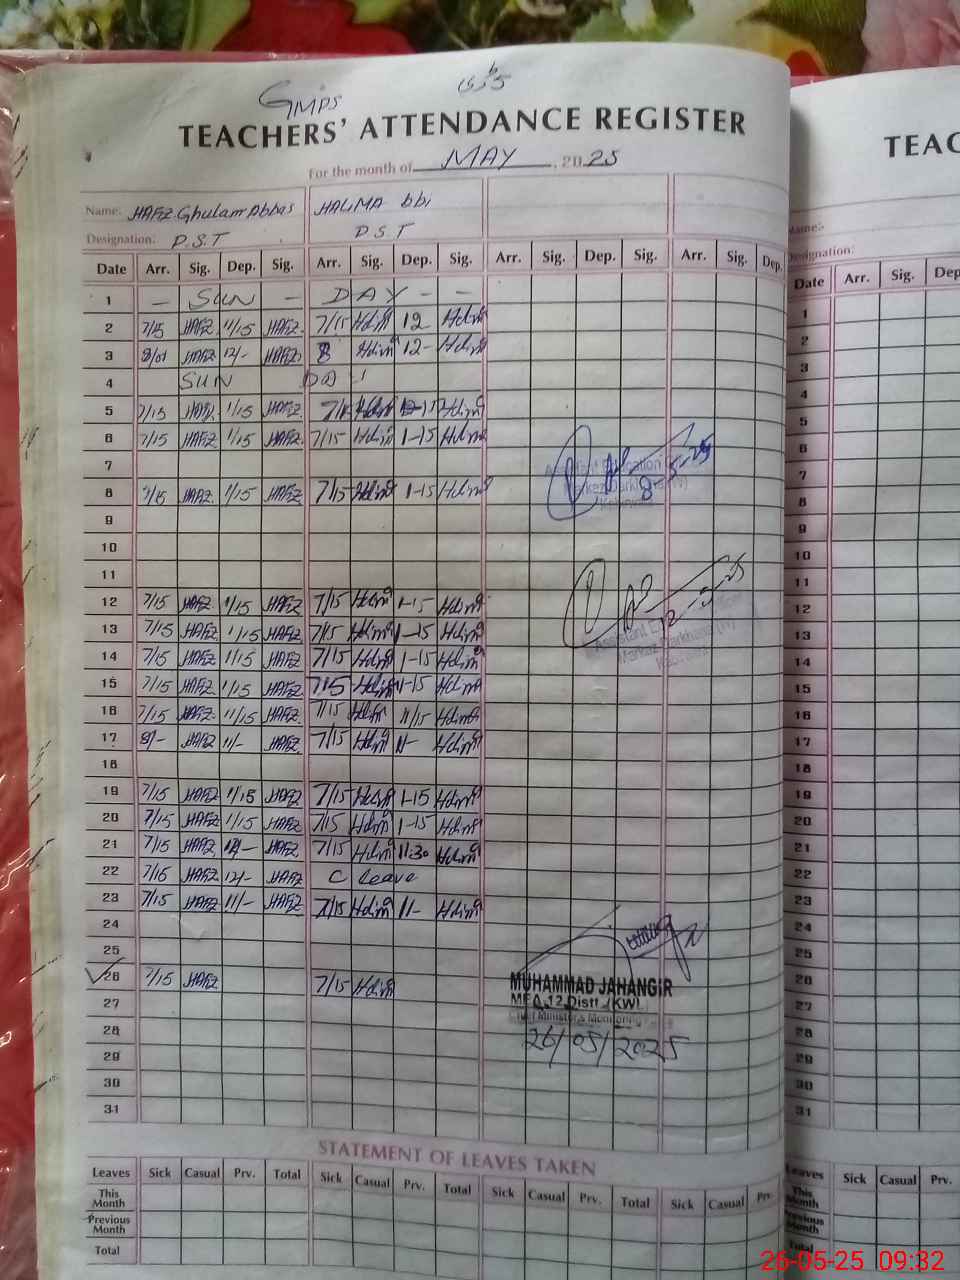 GMPS
TEACHERS' ATTENDANCE REGISTER
TEAC
For the month of MAY, 2025
Name: HAFIZ Ghulam Abbas HALIMA bbi
Name:-
Designation: P.S.T P.S.T
Designation:
Date Arr. Sig. Dep. Sig. Arr. Sig. Dep. Sig. Arr. Sig. Dep. Sig. Arr. Sig. Dep.
Date Arr. Sig. Dep
1 — SUN — DAY - -
2 7/15 HAFIZ 11/15 HAFIZ 7/15 Halima 12 Halima
3 8/01 HAFIZ 12/- HAFIZ 8 Halima 12- Halima
4 SUN DA
5 7/15 HAFIZ 1/15 HAFIZ Halima Halima
6 7/15 HAFIZ 1/15 HAFIZ 7/15 Halima 1-15 Halima
7
8 7/15 HAFIZ 1/15 HAFIZ 7/15 Halima 1-15 Halima
9
10
11
12 7/15 HAFIZ 1/15 HAFIZ 7/15 Halima 1-15 Halima
13 7/15 HAFIZ 1/15 HAFIZ 7/15 Halima 1-15 Halima
14 7/15 HAFIZ 1/15 HAFIZ 7/15 Halima 1-15 Halima
15 7/15 HAFIZ 1/15 HAFIZ 7/15 Halima 1-15 Halima
16 7/15 HAFIZ 11/15 HAFIZ 7/15 Halima 11/15 Halima
17 8/- HAFIZ 11/- HAFIZ 7/15 Halima 11- Halima
18
19 7/15 HAFIZ 1/15 HAFIZ 7/15 Halima 1-15 Halima
20 7/15 HAFIZ 1/15 HAFIZ 7/15 Halima 1-15 Halima
21 7/15 HAFIZ 12/- HAFIZ 7/15 Halima 11:30 Halima
22 7/15 HAFIZ 12/- HAFIZ C leave
23 7/15 HAFIZ 11/- HAFIZ 7/15 Halima 11- Halima
24
25
26 7/15 HAFIZ 7/15 Halima
27
28
29
30
31
Assistant Education
8-5-25
12-5-25
Assistant E
Markaz Darkhana (W)
MUHAMMAD JAHANGIR
MEA 12 Distt. (KW)
Chief Minister's Monitoring
26/05/2025
1
2
3
4
5
6
7
8
9
10
11
12
13
14
15
16
17
18
19
20
21
22
23
24
25
26
27
28
29
30
31
STATEMENT OF LEAVES TAKEN
Leaves Sick Casual Prv. Total Sick Casual Prv. Total Sick Casual Prv. Total Sick Casual Prv.
This Month
Previous Month
Total
Leaves Sick Casual Prv.
This Month
Previous Month
Total
26-05-25 09:32